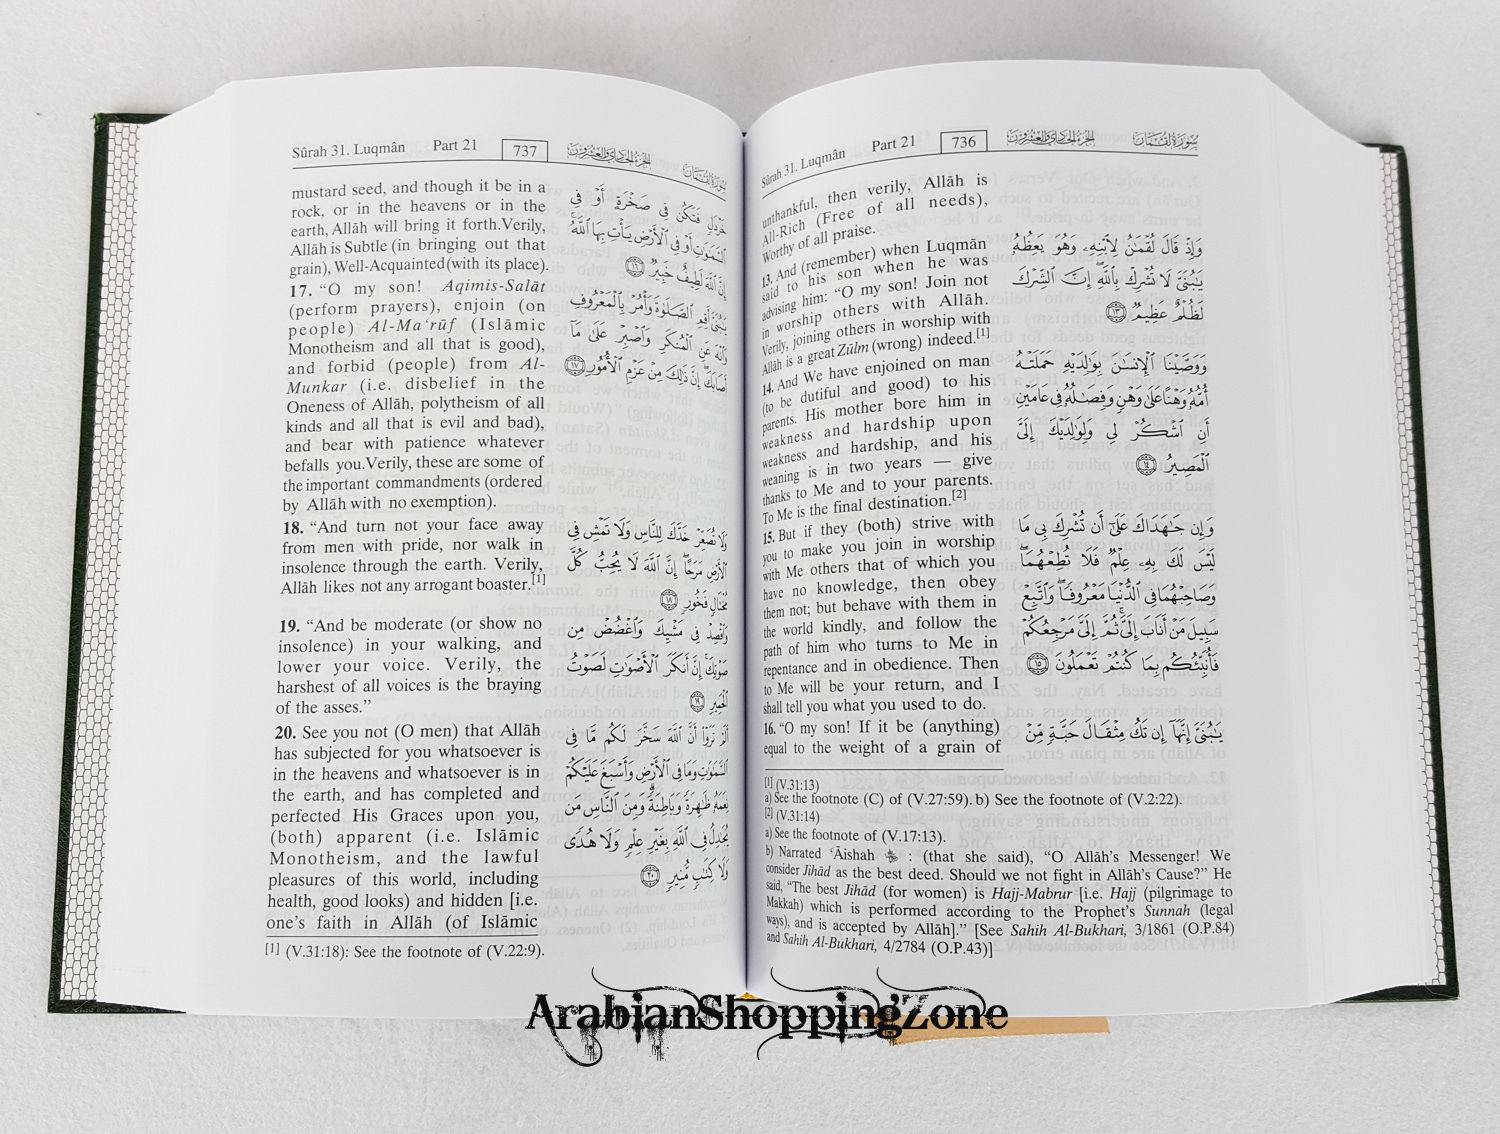 Sûrah 31. Luqmân
Part 21
736
الجزء الحادي والعشرون
سورة لقمان
unthankful, then verily, Allâh is
All-Rich (Free of all needs),
Worthy of all praise.
13. And (remember) when Luqmân
said to his son when he was
advising him: “O my son! Join not
in worship others with Allâh.
Verily, joining others in worship with
Allâh is a great Zûlm (wrong) indeed.[1]
14. And We have enjoined on man
(to be dutiful and good) to his
parents. His mother bore him in
weakness and hardship upon
weakness and hardship, and his
weaning is in two years — give
thanks to Me and to your parents.
To Me is the final destination.[2]
15. But if they (both) strive with
you to make you join in worship
with Me others that of which you
have no knowledge, then obey
them not; but behave with them in
the world kindly, and follow the
path of him who turns to Me in
repentance and in obedience. Then
to Me will be your return, and I
shall tell you what you used to do.
16. “O my son! If it be (anything)
equal to the weight of a grain of
وَإِذْ قَالَ لُقْمَٰنُ لِٱبْنِهِۦ وَهُوَ يَعِظُهُۥ
يَٰبُنَىَّ لَا تُشْرِكْ بِٱللَّهِ ۖ إِنَّ ٱلشِّرْكَ
لَظُلْمٌ عَظِيمٌ ١٣
وَوَصَّيْنَا ٱلْإِنسَٰنَ بِوَٰلِدَيْهِ حَمَلَتْهُ
أُمُّهُۥ وَهْنًا عَلَىٰ وَهْنٍ وَفِصَٰلُهُۥ فِى عَامَيْنِ
أَنِ ٱشْكُرْ لِى وَلِوَٰلِدَيْكَ إِلَىَّ
ٱلْمَصِيرُ ١٤
وَإِن جَٰهَدَاكَ عَلَىٰٓ أَن تُشْرِكَ بِى مَا
لَيْسَ لَكَ بِهِۦ عِلْمٌ فَلَا تُطِعْهُمَا ۖ
وَصَاحِبْهُمَا فِى ٱلدُّنْيَا مَعْرُوفًا ۖ وَٱتَّبِعْ
سَبِيلَ مَنْ أَنَابَ إِلَىَّ ۚ ثُمَّ إِلَىَّ مَرْجِعُكُمْ
فَأُنَبِّئُكُم بِمَا كُنتُمْ تَعْمَلُونَ ١٥
يَٰبُنَىَّ إِنَّهَآ إِن تَكُ مِثْقَالَ حَبَّةٍ مِّنْ
[1] (V.31:13)
a) See the footnote (C) of (V.27:59). b) See the footnote of (V.2:22).
[2] (V.31:14)
a) See the footnote of (V.17:13).
b) Narrated ‘Āishah : (that she said), “O Allâh’s Messenger! We
consider Jihād as the best deed. Should we not fight in Allâh’s Cause?” He
said, “The best Jihād (for women) is Hajj-Mabrur [i.e. Hajj (pilgrimage to
Makkah) which is performed according to the Prophet’s Sunnah (legal
ways), and is accepted by Allâh].” [See Sahih Al-Bukhari, 3/1861 (O.P.84)
and Sahih Al-Bukhari, 4/2784 (O.P.43)]
Sûrah 31. Luqmân
Part 21
737
الجزء الحادي والعشرون
سورة لقمان
mustard seed, and though it be in a
rock, or in the heavens or in the
earth, Allāh will bring it forth.Verily,
Allāh is Subtle (in bringing out that
grain), Well-Acquainted (with its place).
17. “O my son! Aqimis-Salāt
(perform prayers), enjoin (on
people) Al-Ma‘rūf (Islāmic
Monotheism and all that is good),
and forbid (people) from Al-
Munkar (i.e. disbelief in the
Oneness of Allāh, polytheism of all
kinds and all that is evil and bad),
and bear with patience whatever
befalls you.Verily, these are some of
the important commandments (ordered
by Allāh with no exemption).
18. “And turn not your face away
from men with pride, nor walk in
insolence through the earth. Verily,
Allāh likes not any arrogant boaster.[1]
19. “And be moderate (or show no
insolence) in your walking, and
lower your voice. Verily, the
harshest of all voices is the braying
of the asses.”
20. See you not (O men) that Allāh
has subjected for you whatsoever is
in the heavens and whatsoever is in
the earth, and has completed and
perfected His Graces upon you,
(both) apparent (i.e. Islāmic
Monotheism, and the lawful
pleasures of this world, including
health, good looks) and hidden [i.e.
one’s faith in Allāh (of Islāmic
خَرْدَلٍ فَتَكُن فِى صَخْرَةٍ أَوْ فِى
ٱلسَّمَٰوَٰتِ أَوْ فِى ٱلْأَرْضِ يَأْتِ بِهَا ٱللَّهُ ۚ
إِنَّ ٱللَّهَ لَطِيفٌ خَبِيرٌ ١٦
يَٰبُنَىَّ أَقِمِ ٱلصَّلَوٰةَ وَأْمُرْ بِٱلْمَعْرُوفِ
وَٱنْهَ عَنِ ٱلْمُنكَرِ وَٱصْبِرْ عَلَىٰ مَآ
أَصَابَكَ ۖ إِنَّ ذَٰلِكَ مِنْ عَزْمِ ٱلْأُمُورِ ١٧
وَلَا تُصَعِّرْ خَدَّكَ لِلنَّاسِ وَلَا تَمْشِ فِى
ٱلْأَرْضِ مَرَحًا ۖ إِنَّ ٱللَّهَ لَا يُحِبُّ كُلَّ
مُخْتَالٍ فَخُورٍ ١٨
وَٱقْصِدْ فِى مَشْيِكَ وَٱغْضُضْ مِن
صَوْتِكَ ۚ إِنَّ أَنكَرَ ٱلْأَصْوَٰتِ لَصَوْتُ
ٱلْحَمِيرِ ١٩
أَلَمْ تَرَوْا۟ أَنَّ ٱللَّهَ سَخَّرَ لَكُم مَّا فِى
ٱلسَّمَٰوَٰتِ وَمَا فِى ٱلْأَرْضِ وَأَسْبَغَ عَلَيْكُمْ
نِعَمَهُۥ ظَٰهِرَةً وَبَاطِنَةً ۗ وَمِنَ ٱلنَّاسِ مَن
يُجَٰدِلُ فِى ٱللَّهِ بِغَيْرِ عِلْمٍ وَلَا هُدًى
وَلَا كِتَٰبٍ مُّنِيرٍ ٢٠
[1] (V.31:18): See the footnote of (V.22:9).
ArabianShoppingZone